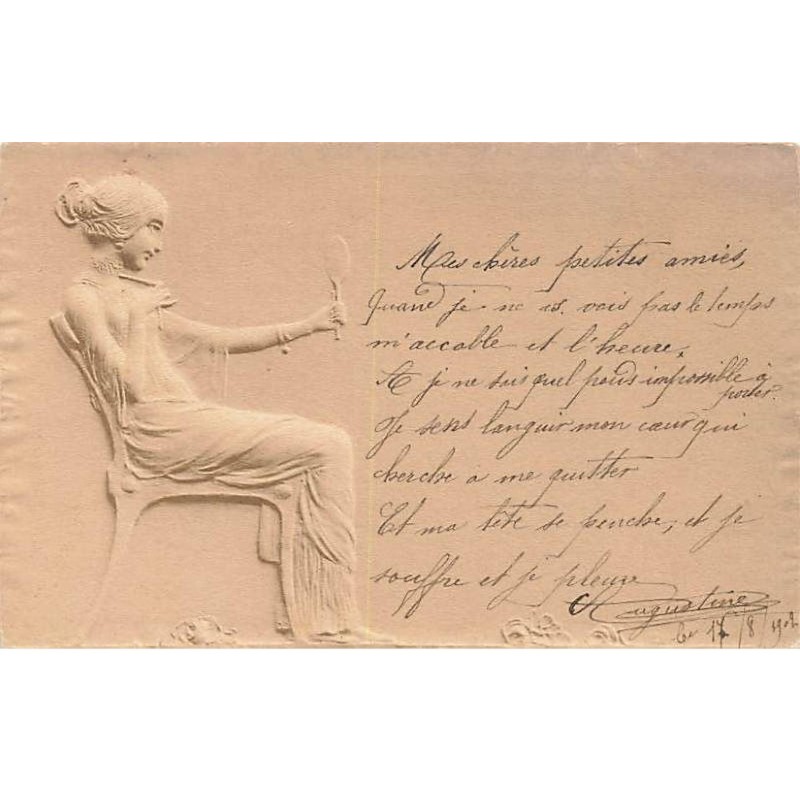 Mes chères petites amies,
Quand je ne vs. vois pas le temps
m'accable et l'heure,
A je ne sais quel poids impossible à
porter.
Je sens languir mon cœur qui
cherche à me quitter
Et ma tête se penche, et je
souffre et je pleure
Augustine
le 17/8/1902